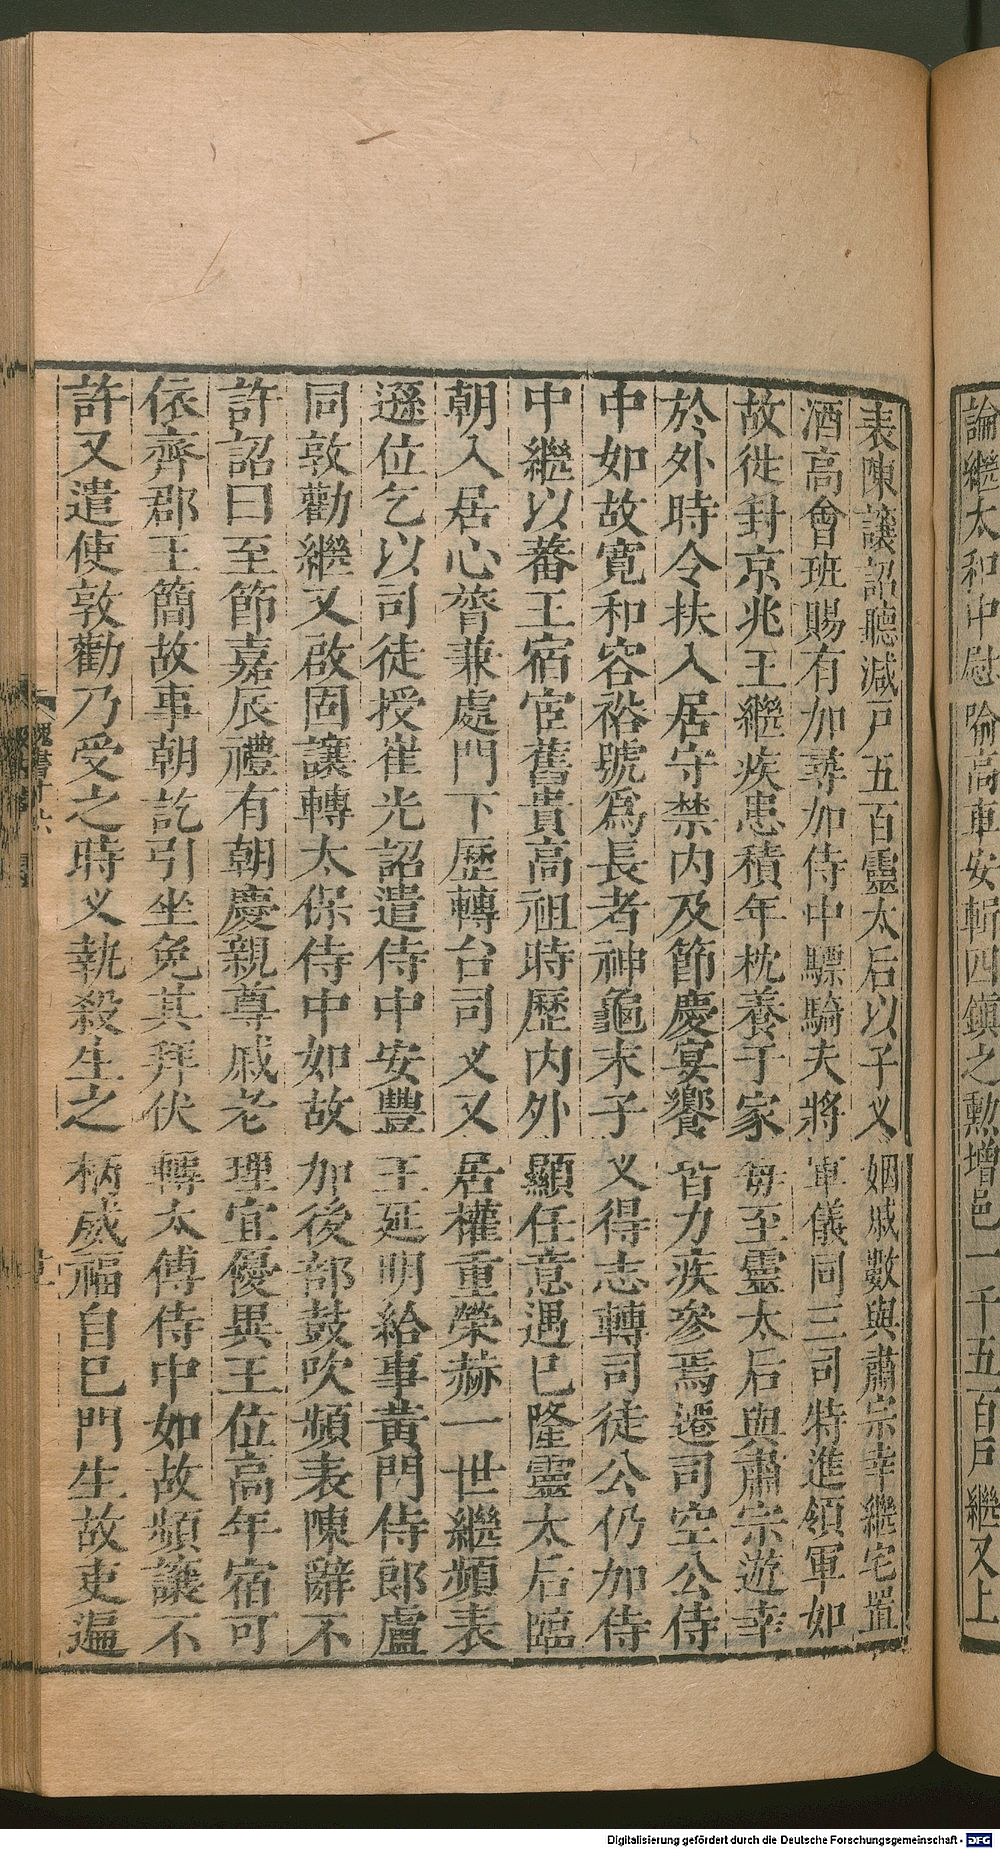 論繼太和中慰喻高車安輯四鎮之勲增邑一千五百戸繼又上
表陳讓詔聽減戸五百靈太后以子义姻戚數與肅宗幸繼宅置
酒高會班賜有加尋加侍中驃騎大將軍儀同三司特進領軍如
故徙封京兆王繼疾患積年枕養于家每至靈太后與肅宗遊幸
於外時令扶入居守禁内及節慶宴饗皆力疾參焉遷司空公侍
中如故寛和容裕號爲長者神龜末子义得志轉司徒公仍加侍
中繼以蕃王宿宦舊貴高祖時歷内外顯任意遇已隆靈太后臨
朝入居心膂兼處門下歷轉台司义又居權重榮赫一世繼頻表
遜位乞以司徒授崔光詔遣侍中安豐王延明給事黄門侍郎盧
同敦勸繼又啟固讓轉太保侍中如故加後部鼓吹頻表陳辭不
許詔曰至節嘉辰禮有朝慶親尊戚老理宜優異王位高年宿可
依齊郡王簡故事朝訖引坐免其拜伏轉太傅侍中如故頻讓不
許又遣使敦勸乃受之時义執殺生之柄威福自已門生故吏遍
魏書十六
Digitalisierung gefördert durch die Deutsche Forschungsgemeinschaft - DFG